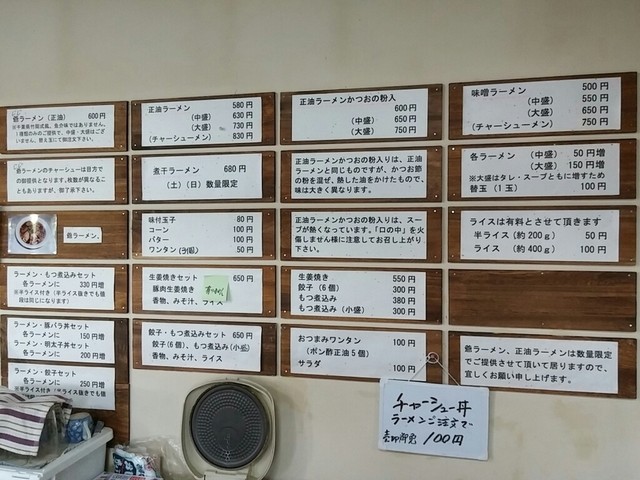 爺ラーメン（正油） 600円
正油ラーメン 580円
（中盛） 630円
（大盛） 730円
（チャーシューメン） 830円
正油ラーメンかつおの粉入
600円
（中盛） 650円
（大盛） 750円
味噌ラーメン 500円
（中盛） 550円
（大盛） 650円
（チャーシューメン） 750円
爺ラーメンのチャーシューは目方で
の御提供となります。枚数が異なるこ
ともありますが、御了承下さい。
煮干ラーメン 680円
（土）（日）数量限定
正油ラーメンかつおの粉入りは、正油
ラーメンと同じものですが、かつお節
の粉を混ぜ、熱した油をかけたもので、
味は大きく異なります。
各ラーメン （中盛） 50円増
（大盛） 150円増
※大盛はタレ・スープともに増すため
替玉（１玉） 100円
爺ラーメン。
味付玉子 80円
コーン 100円
バター 100円
ワンタン 50円
正油ラーメンかつおの粉入りは、スー
プが熱くなっています。「口の中」を火
傷しません様に注意してお召し上がり
下さい。
ライスは有料とさせて頂きます
半ライス（約200g） 50円
ライス （約400g） 100円
ラーメン・もつ煮込みセット
各ラーメンに 330円増
生姜焼きセット 650円
豚肉生姜焼き
香物、みそ汁、ライス
生姜焼き 550円
餃子（６個） 300円
もつ煮込み 380円
もつ煮込み（小盛） 300円
ラーメン・豚バラ丼セット
各ラーメンに 150円増
ラーメン・明太子丼セット
各ラーメンに 200円増
餃子・もつ煮込みセット 650円
餃子（6個）、もつ煮込み（小盛）
香物、みそ汁、ライス
おつまみワンタン 100円
（ポン酢正油５個）
サラダ 100円
爺ラーメン、正油ラーメンは数量限定
でご提供させて頂いて居りますので、
宜しくお願い申し上げます。
ラーメン・餃子セット
各ラーメンに 250円増
チャーシュー丼
ラーメンご注文で
売切御免 100円